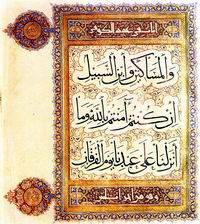 والمساكين وابن السبيل
ان كنتم آمنتم بالله وما
انزلنا على عبدنا يوم الفرقان